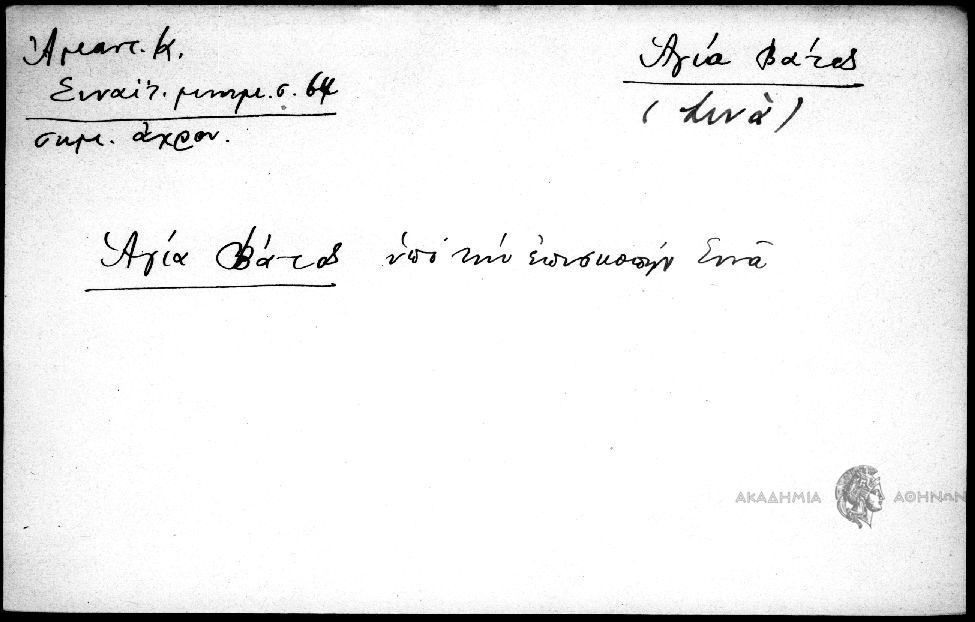 Ἀμαντ. Κ.
Σιναϊτ. μνημ. σ. 64
σημ. ἄχρον.
Ἁγία Βάτος
(Σινᾶ)
Ἁγία Βάτος ὑπὸ τὴν ἐπισκοπὴν Σινᾶ
ΑΚΑΔΗΜΙΑ ΑΘΗΝΩΝ